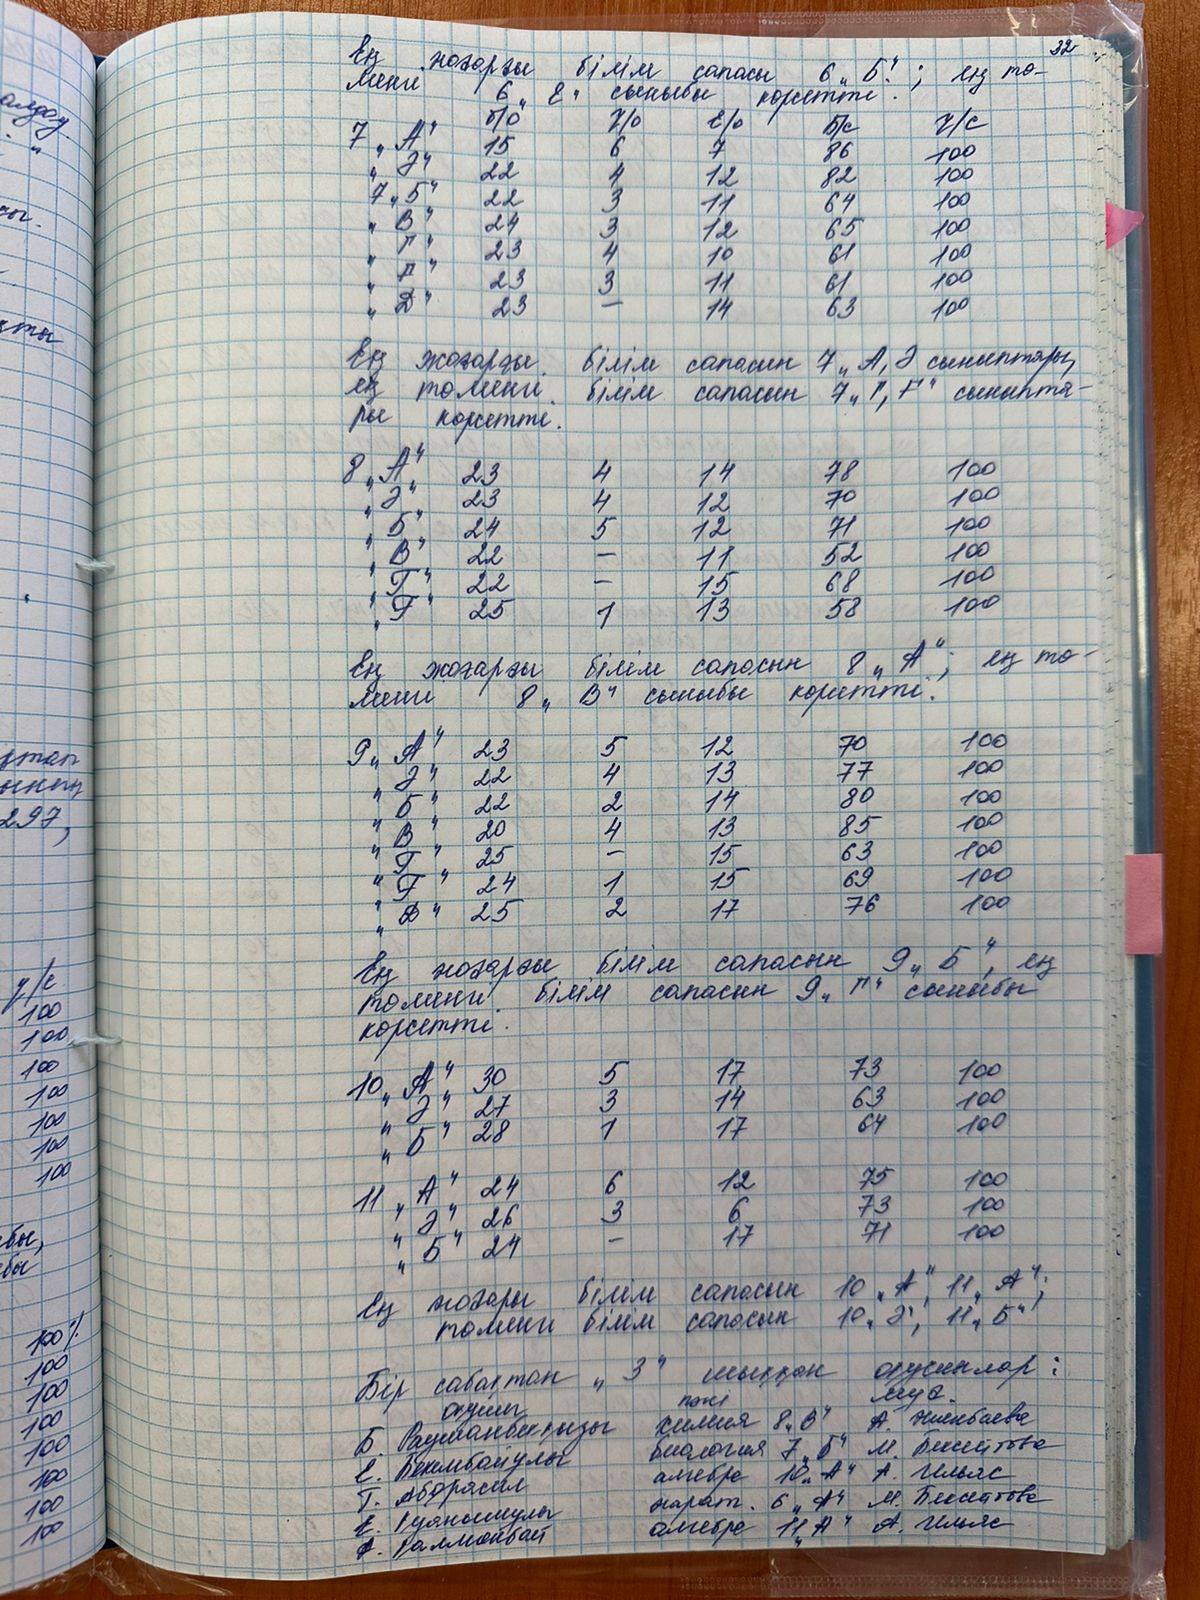 32
Ең жоғарғы білім сапасы 6 „Б"; ең тө-
менгі 6 „Е" сыныбы көрсетті.
б/о ү/о е/о б/с ү/с
7 „А" 15 6 7 86 100
„Ә" 22 4 12 82 100
7 „Б" 22 3 11 64 100
„В" 24 3 12 65 100
„Г" 23 4 10 61 100
„Ғ" 23 3 11 61 100
„Д" 23 — 14 63 100
Ең жоғарғы білім сапасын 7 „А, Ә сыныптары,
ең төменгі білім сапасын 7 „Г, Ғ" сыныпта-
ры көрсетті.
8 „А" 23 4 14 78 100
„Ә" 23 4 12 70 100
„Б" 24 5 12 71 100
„В" 22 — 11 52 100
„Г" 22 — 15 68 100
„Ғ" 25 1 13 58 100
Ең жоғарғы білім сапасын 8 „А"; ең тө-
менгі 8 „В" сыныбы көрсетті.
9 „А" 23 5 12 70 100
„Ә" 22 4 13 77 100
„Б" 22 2 14 80 100
„В" 20 4 13 85 100
„Г" 25 — 15 63 100
„Ғ" 24 1 15 69 100
„Д" 25 2 17 76 100
Ең жоғарғы білім сапасын 9 „Б", ең
төменгі білім сапасын 9 „Г" сыныбы
көрсетті.
10 „А" 30 5 17 73 100
„Ә" 27 3 14 63 100
„Б" 28 1 17 64 100
11 „А" 24 6 12 75 100
„Ә" 26 3 6 73 100
„Б" 24 — 17 71 100
Ең жоғары білім сапасын 10 „А", 11 „А";
төменгі білім сапасын 10 „Ә", 11 „Б"
Бір сабақтан „3" шыққан оқушылар:
оқушы пәні мұғ.
Б. Раушанбекқызы химия 8 „В" А.
Е. Бекембайұлы биология 7 „Б" М. Бексеитова
Г. Абдрасил алгебра 10 „А" А. Ильяс
Е. жарат. 6 „А" М. Бексеитова
алгебра 11 „А" А. Ильяс
ү/с
100
100
100
100
100
100
100
100%
100
100
100
100
100
100
100
297,